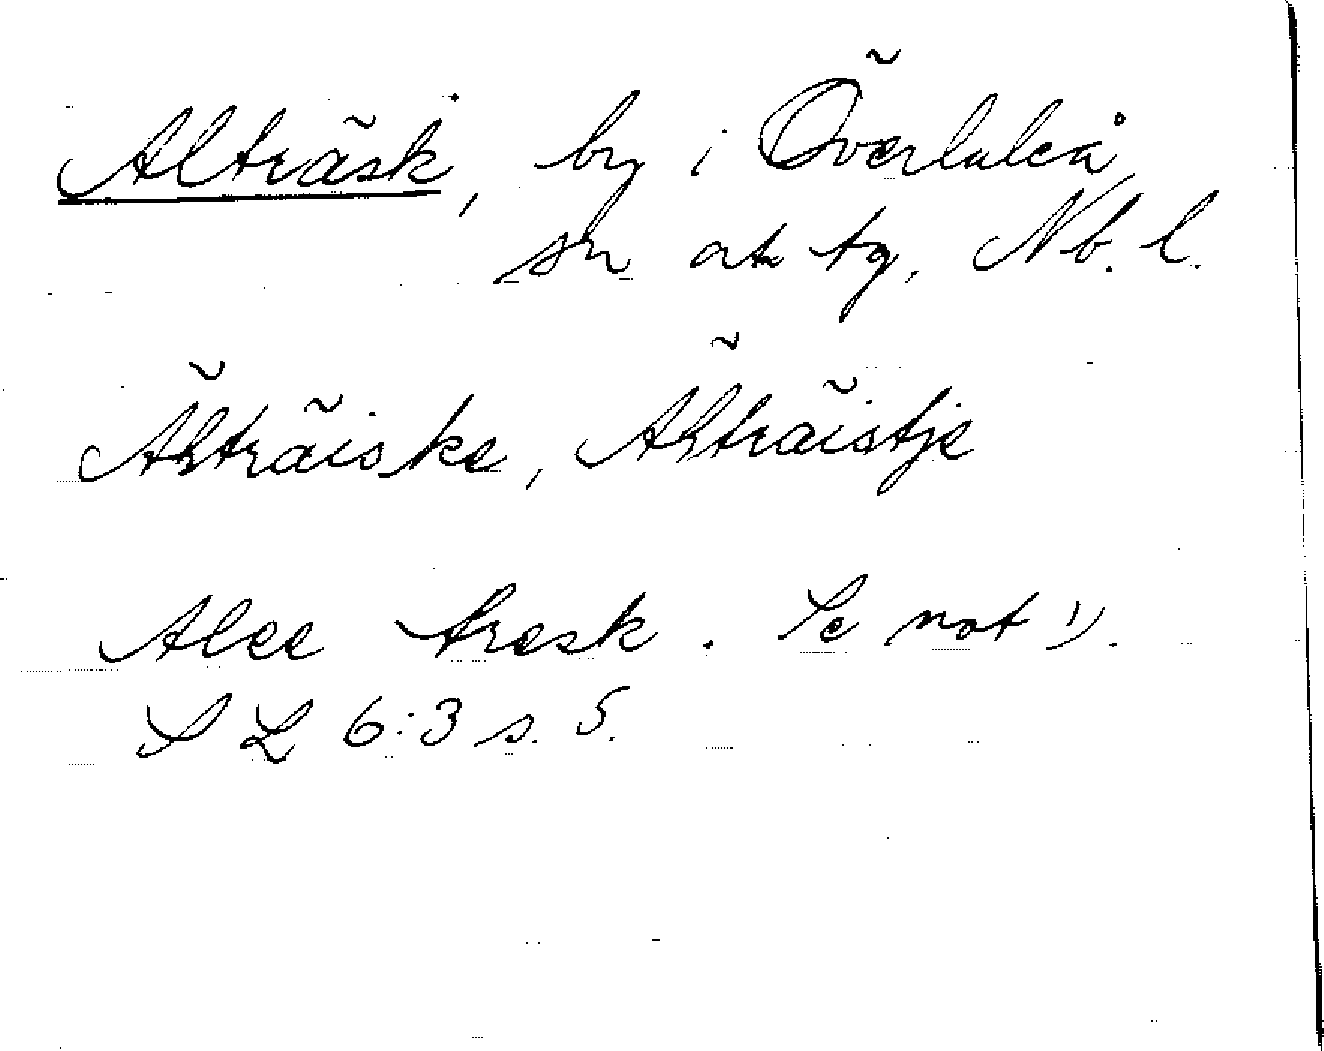 Alträsk, by i Överluleå
sn o tg, Nb. l.
Ählträiske, Ählträistje
Alee tresk. Se not 1).
S L 6:3 s. 5.